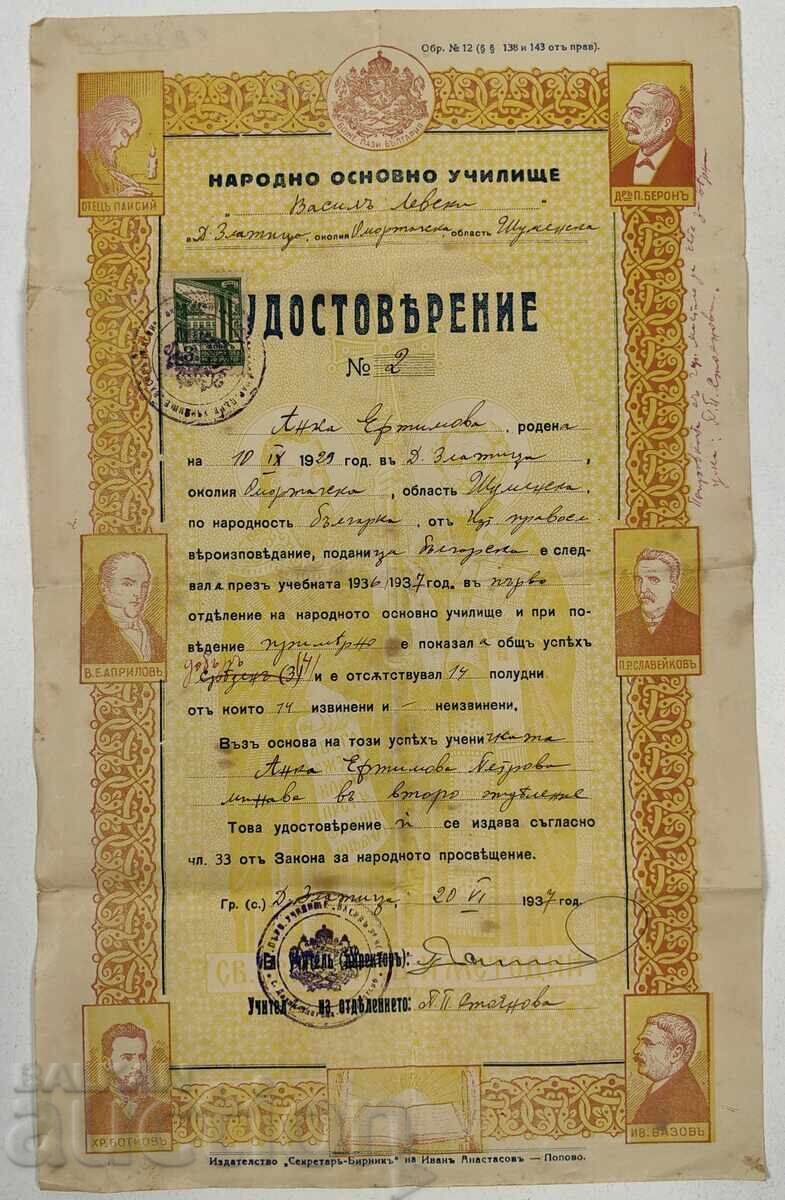 Обр. № 12 (§ § 138 и 143 отъ прав).
БОЖЕ ПАЗИ БЪЛГАРИЯ
ОТЕЦЪ ПАИСИЙ
Дръ П. БЕРОНЪ
НАРОДНО ОСНОВНО УЧИЛИЩЕ
„Василъ Левски“
в Д. Златица, околия Оморташка, область Шуменска
УДОСТОВѢРЕНИЕ
№ 2
Анка Ертимова, родена
на 10 IX 1929 год. въ Д. Златица,
околия Оморташка, область Шуменска,
по народность българка, отъ православ
вѣроизповѣдание, подани ца българска е след-
вала презъ учебната 1936/1937 год. въ първо
отдѣление на народното основно училище и при по-
вѣдение примѣрно е показала общъ успѣхъ
добъръ /4/
Срѣденъ (3) и е отсѫтвувал 14 полудни
отъ които 14 извинени и - неизвинени.
Възъ основа на този успѣхъ ученичката
Анка Ертимова Петрова
минава въ второ отдѣление
Това удостовѣрение ѝ се издава съгласно
чл. 33 отъ Закона за народното просвѣщение.
Гр. (с.) Д. Златица, 20 VI 1937 год.
(Директоръ):
Учител на отдѣлението: П. П. Стоянова
В. Е. АПРИЛОВЪ
П. Р. СЛАВЕЙКОВЪ
ХР. БОТЙОВЪ
ИВ. ВАЗОВЪ
Издателство „Секретарь-Бирникъ“ на Иванъ Анастасовъ — Попово.
П. П. Стоянова
BALKAN
auction